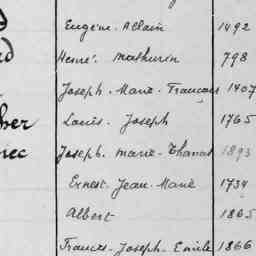 Eugène. Allain 1492
ed Hervé. Mathurin 798
Joseph. Marie. Français 1407
cher Louis. Joseph 1765
nec Joseph. Marie. Thomas 1893
Ernest. Jean. Marie 1734
Albert 1865
Francis. Joseph. Emile 1866